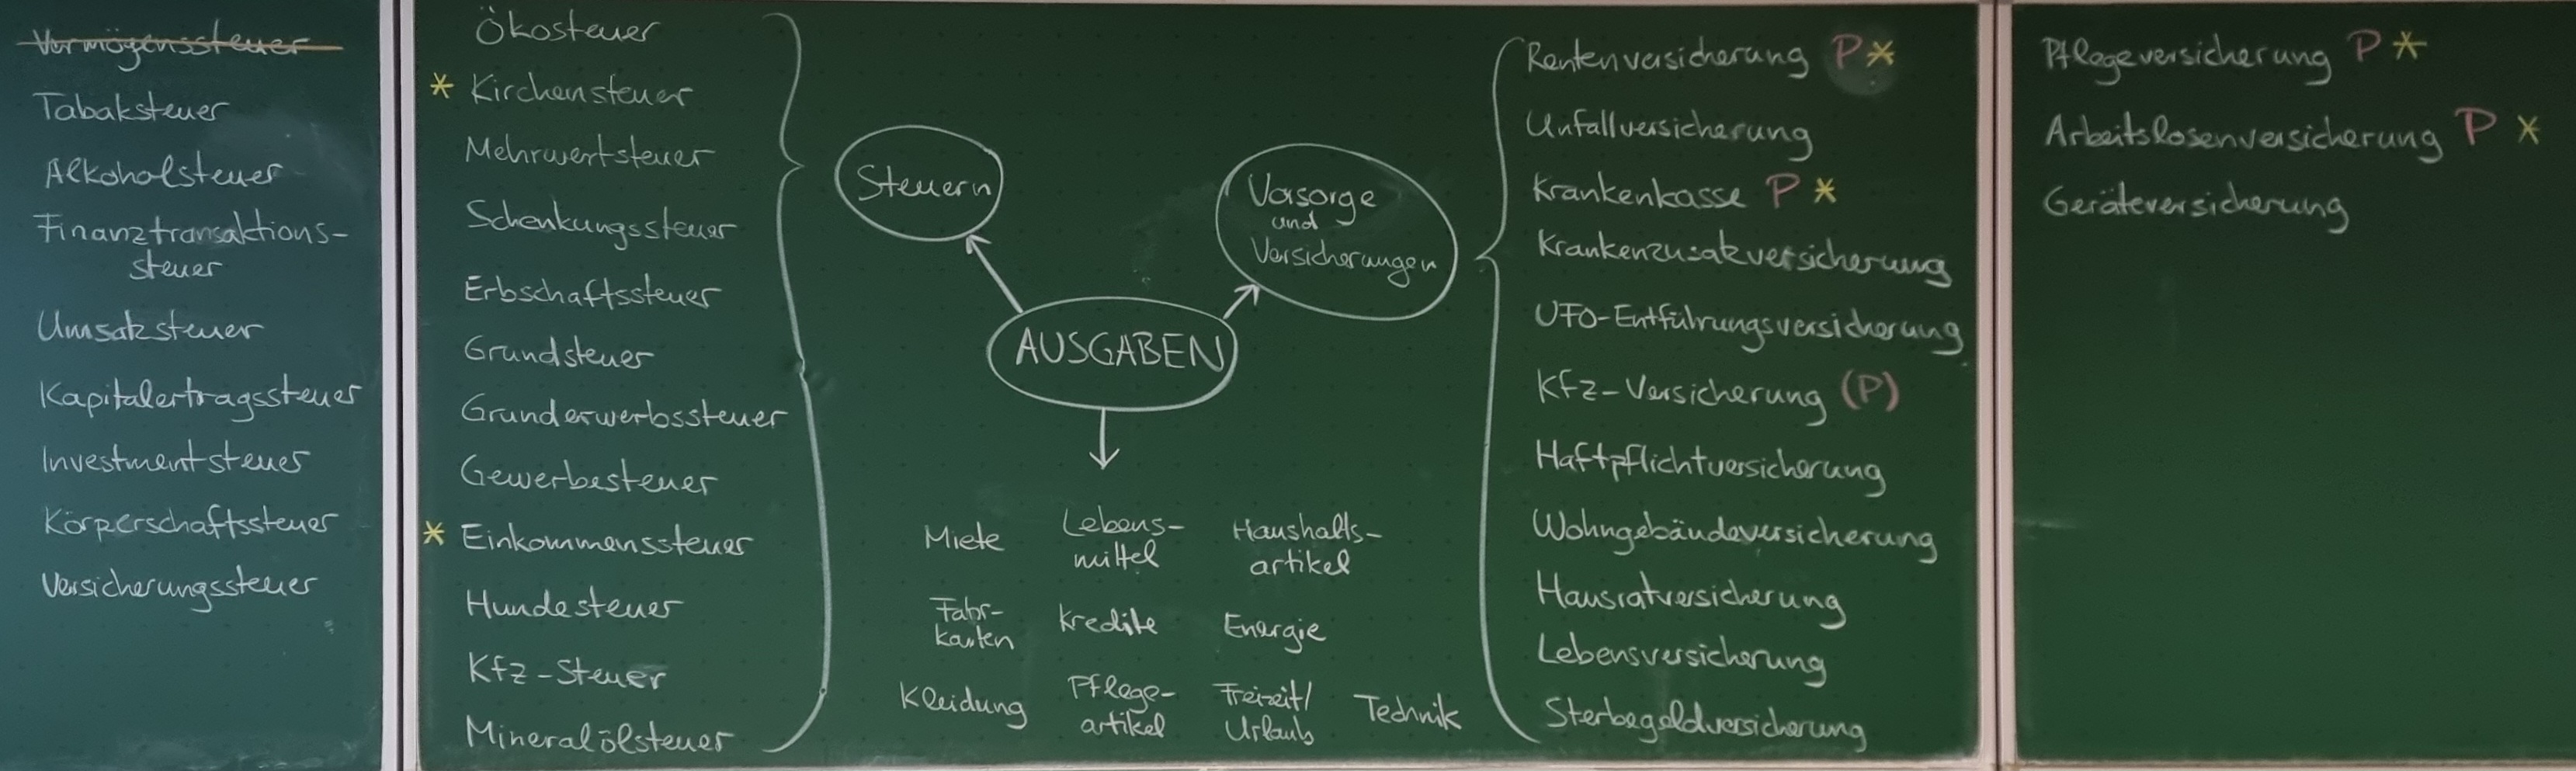 Vermögenssteuer
Tabaksteuer
Alkoholsteuer
Finanztransaktions-
steuer
Umsatzsteuer
Kapitalertragssteuer
Investmentsteuer
Körperschaftssteuer
Versicherungssteuer
Ökosteuer
* Kirchensteuer
Mehrwertsteuer
Schenkungssteuer
Erbschaftssteuer
Grundsteuer
Grunderwerbssteuer
Gewerbesteuer
* Einkommenssteuer
Hundesteuer
Kfz-Steuer
Mineralölsteuer
Steuern
Vorsorge
und
Versicherungen
AUSGABEN
Miete
Lebens-
mittel
Haushalts-
artikel
Fahr-
karten
Kredite
Energie
Kleidung
Pflege-
artikel
Freizeit/
Urlaub
Technik
Rentenversicherung P *
Unfallversicherung
Krankenkasse P *
Krankenzusatzversicherung
UFO-Entführungsversicherung
Kfz-Versicherung (P)
Haftpflichtversicherung
Wohngebäudeversicherung
Hausratversicherung
Lebensversicherung
Sterbegeldversicherung
Pflegeversicherung P *
Arbeitslosenversicherung P *
Geräteversicherung